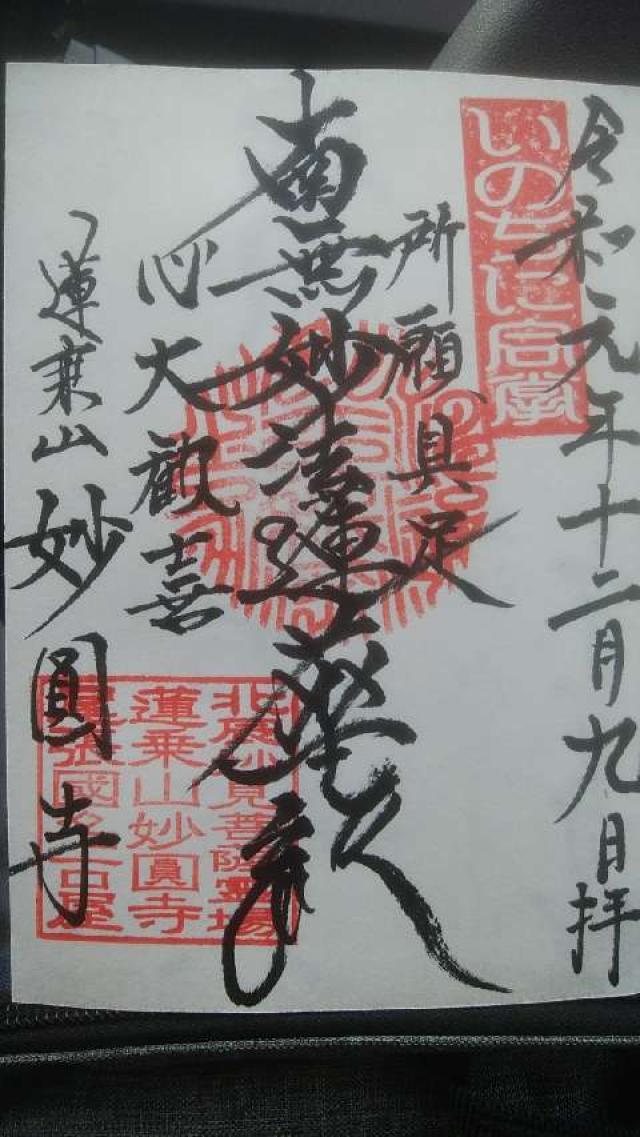 令和元年十二月九日拝
いのちに合掌
所願具足
南無妙法蓮華経
心大歓喜
蓮乗山妙圓寺
北辰妙見菩薩霊場
蓮乗山妙圓寺
尾張國名古屋